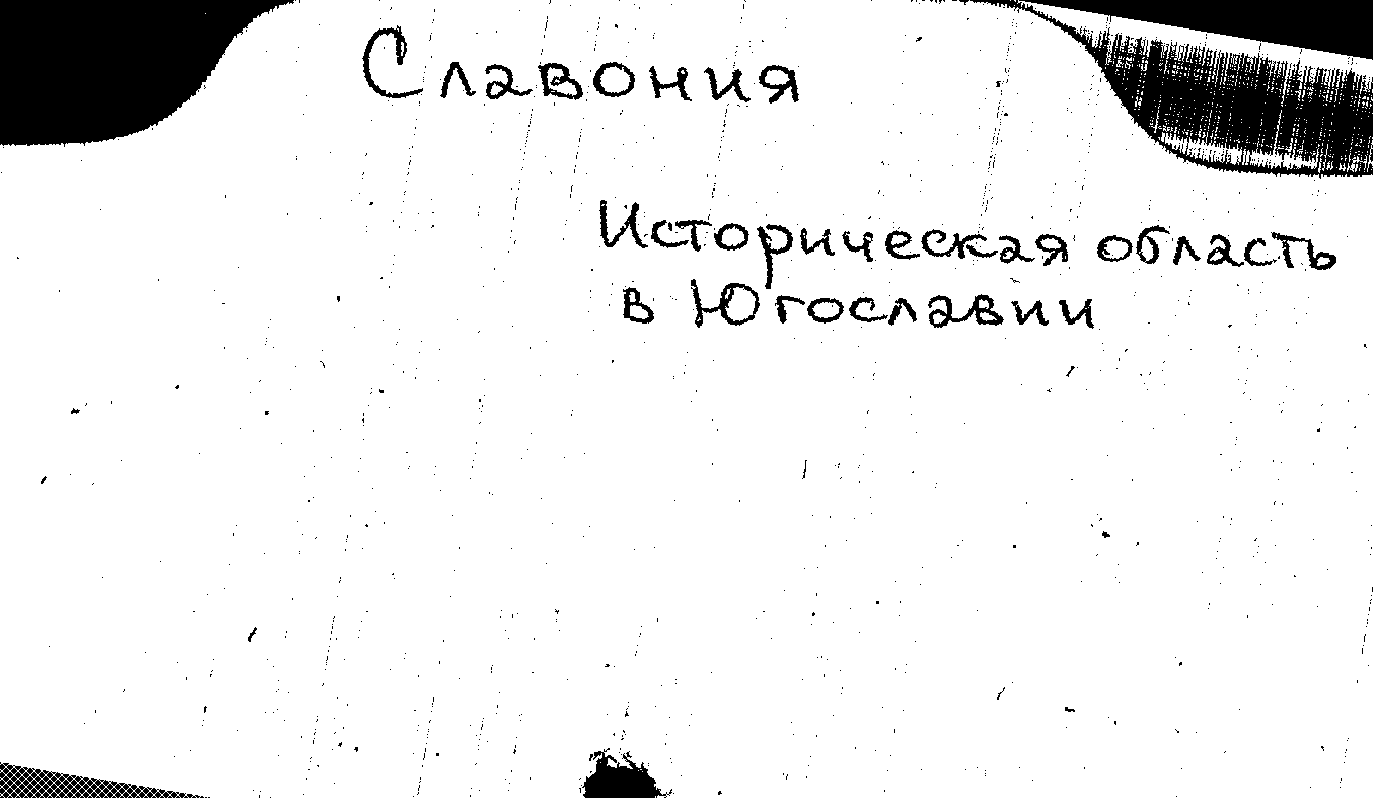 Славония
Историческая область
в Югославии